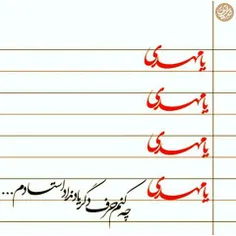 یا مهدی
یا مهدی
یا مهدی
یا مهدی
چه کنم حرف دگر یاد نداد استادم ...